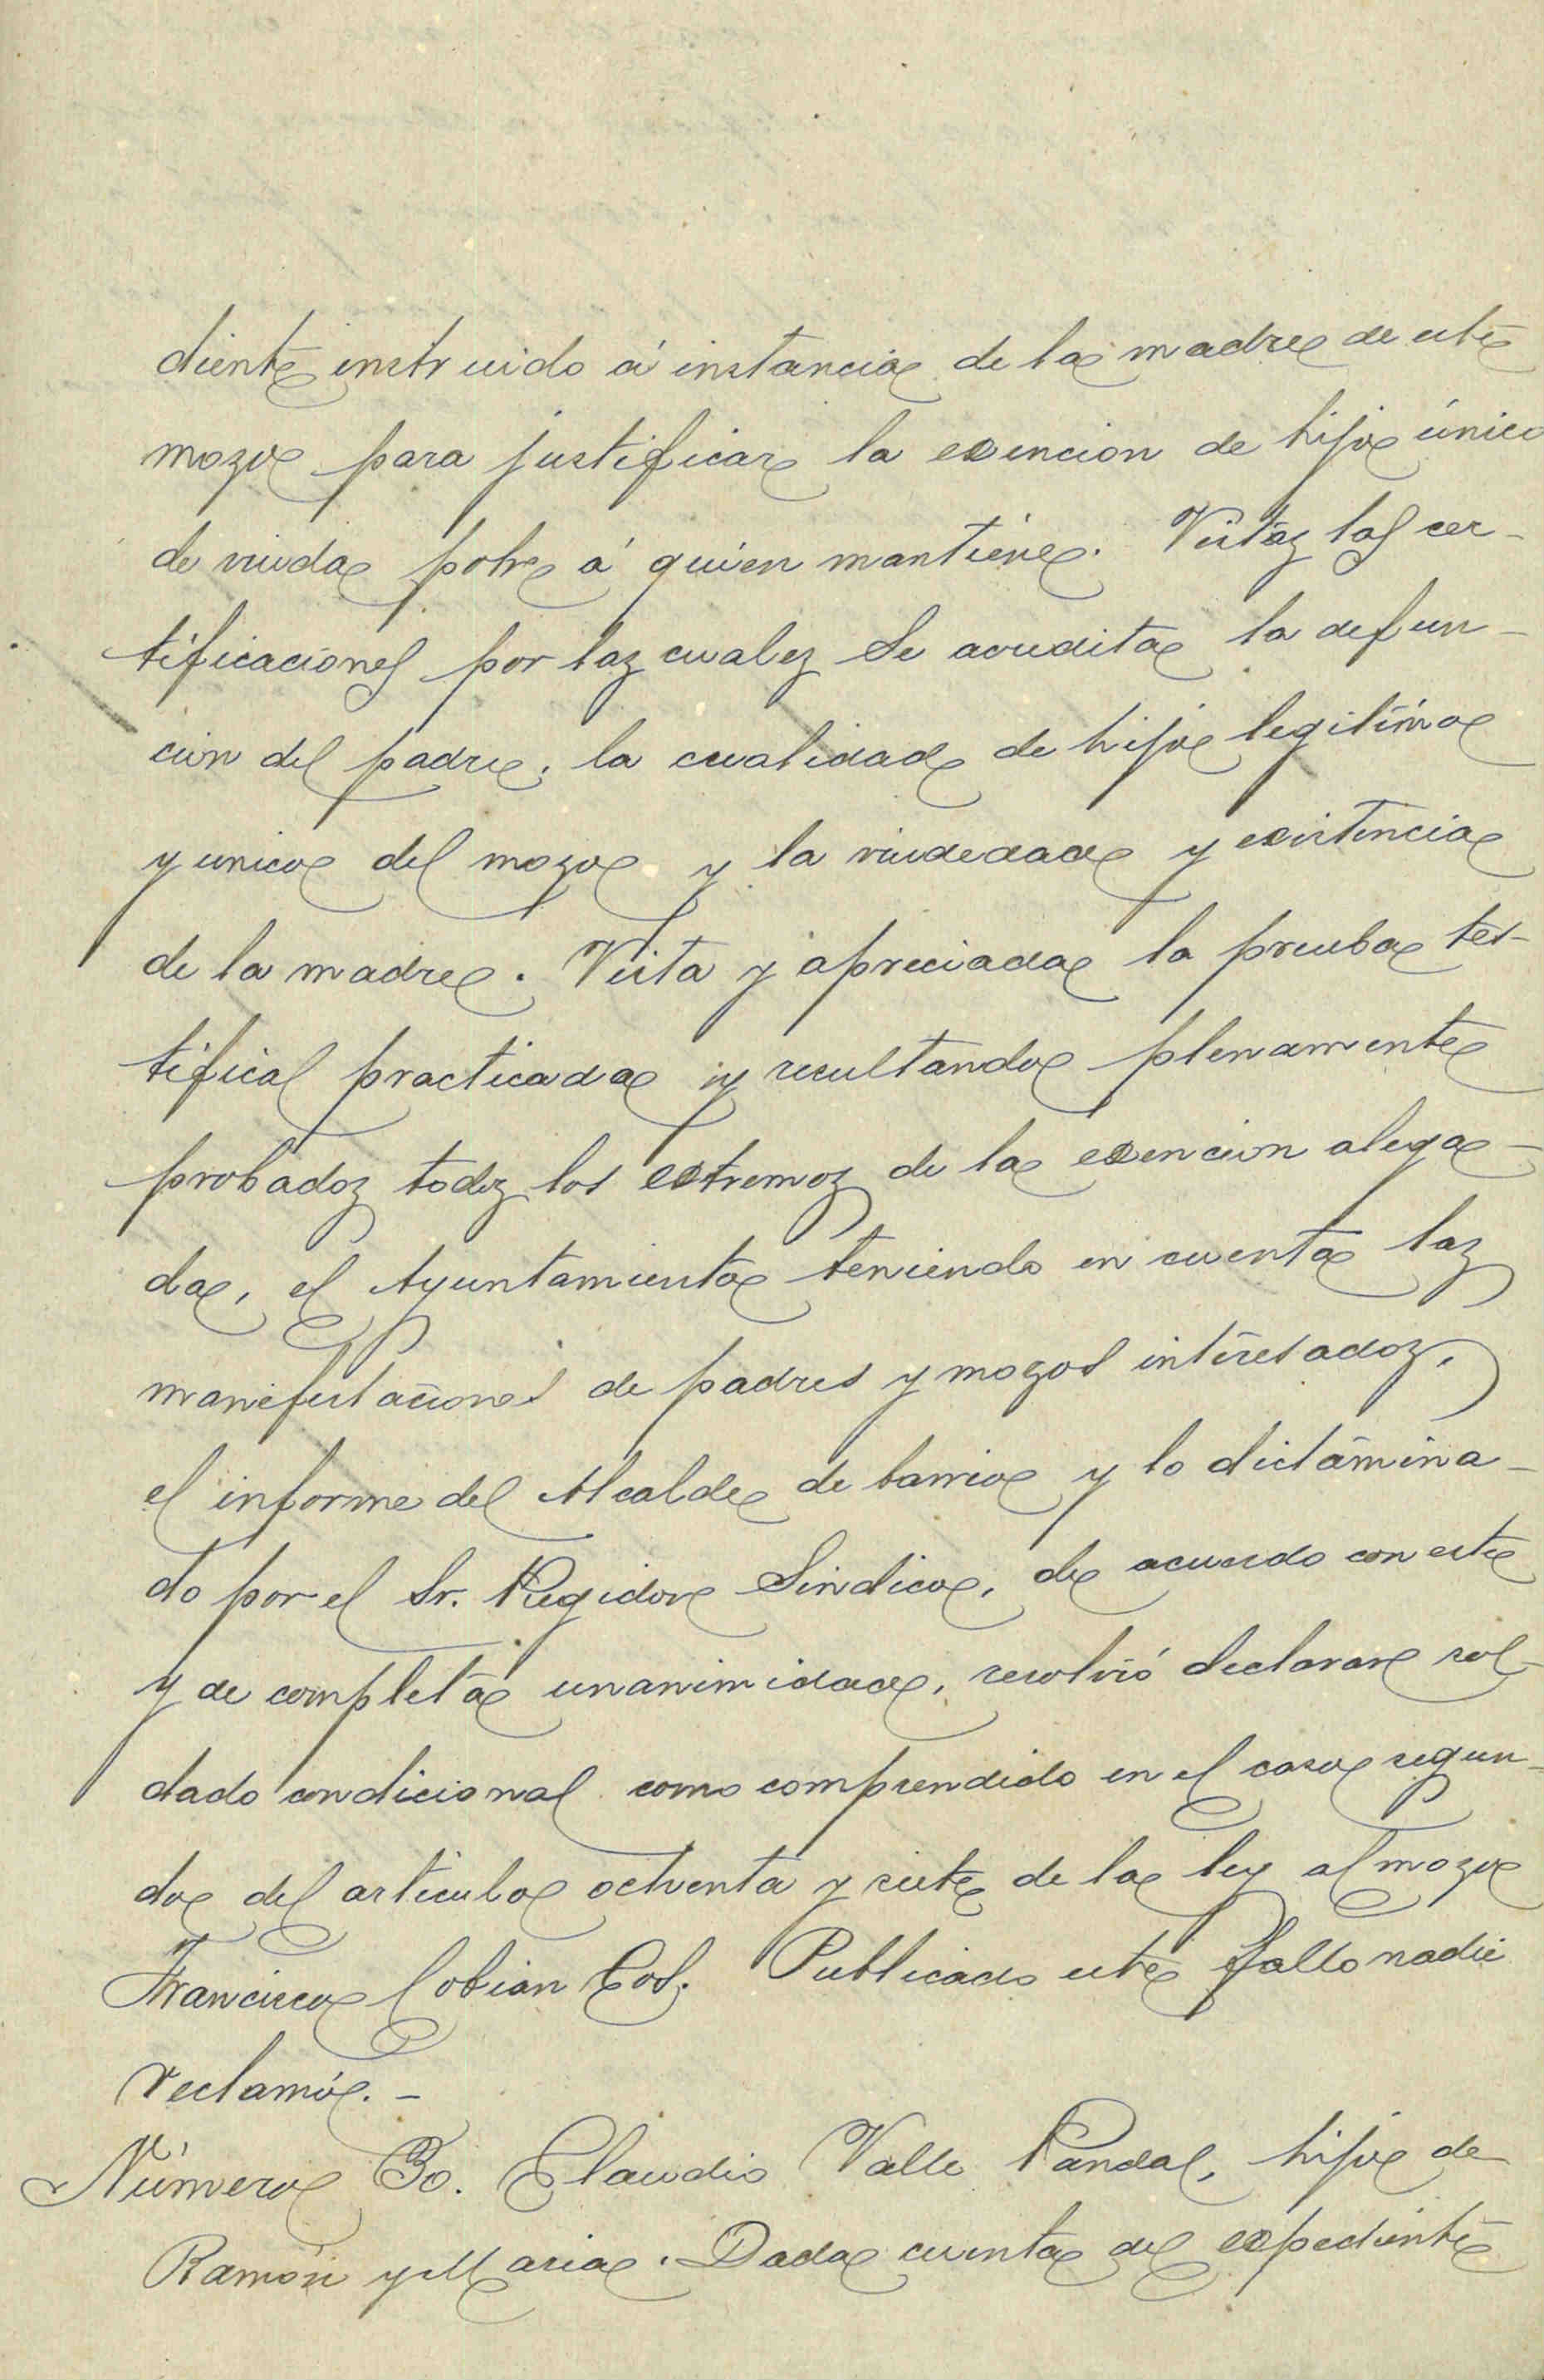 diente instruido á instancia de la madre de este
mozo para justificar la exencion de hijo único
de viuda pobre á quien mantiene. Vistas las cer-
tificaciones por las cuales se acredita la defun-
cion del padre, la cualidad de hijo legitimo
y unico del mozo y la viudedad y existencia
de la madre. Vista y apreciada la prueba tes-
tifical practicada y resultando plenamente
probados todos los extremos de la exencion alega-
da, el Ayuntamiento teniendo en cuenta las
manifestaciones de padres y mozos interesados,
el informe del Alcalde de barrio y lo dictamina-
do por el Sr. Regidor Sindico, de acuerdo con este
y de completa unanimidad, resolvió declarar sol-
dado condicional como comprendido en el caso segun-
do del articulo ochenta y siete de la ley al mozo
Francisco Cobian Cos. Publicado este fallo nadie
reclamó. -
Número 30. Claudio Valle Pandal, hijo de
Ramón y Maria. Dada cuenta del expediente